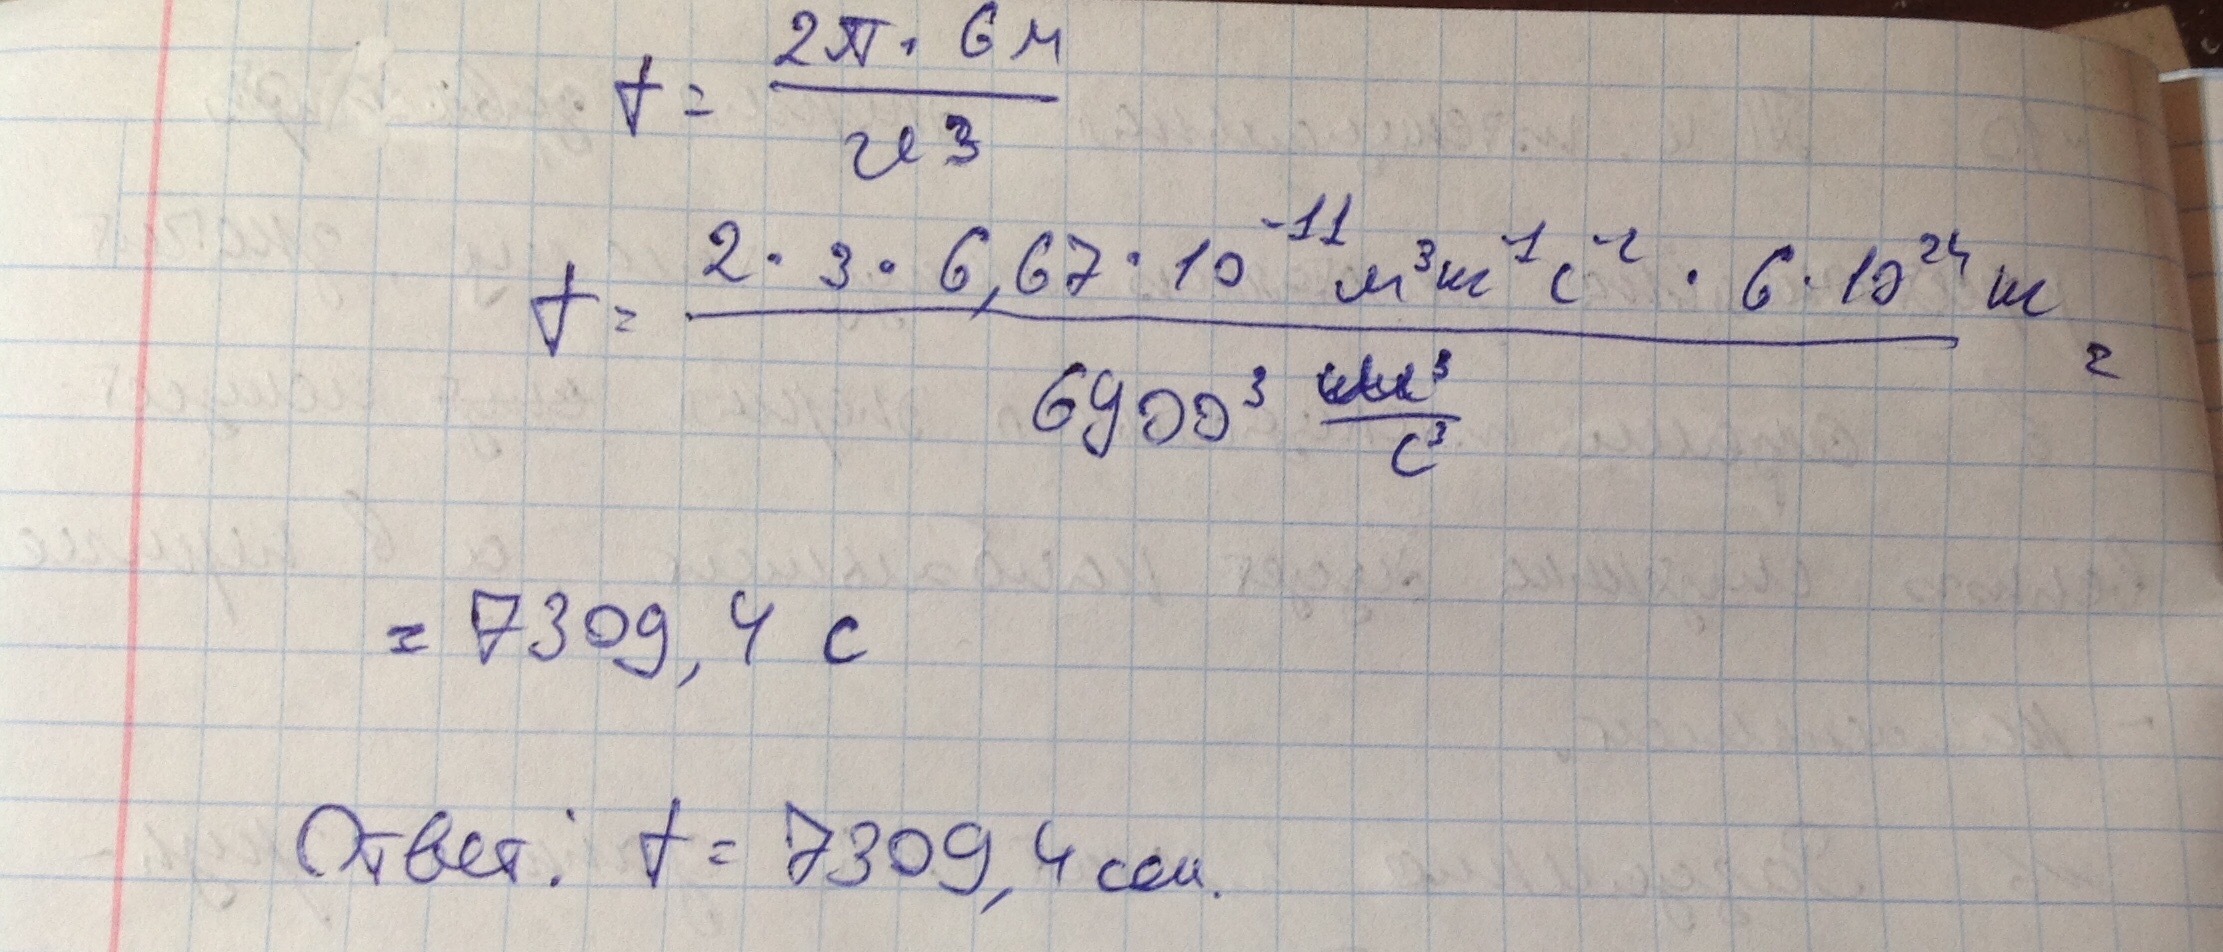 t = 2π · GM / v³
t = 2 · 3 · 6,67 · 10⁻¹¹ м³кг⁻¹с⁻² · 6 · 10²⁴ кг / 6900³ м³/с³ =
= 7309,4 с
Ответ: t = 7309,4 сек.